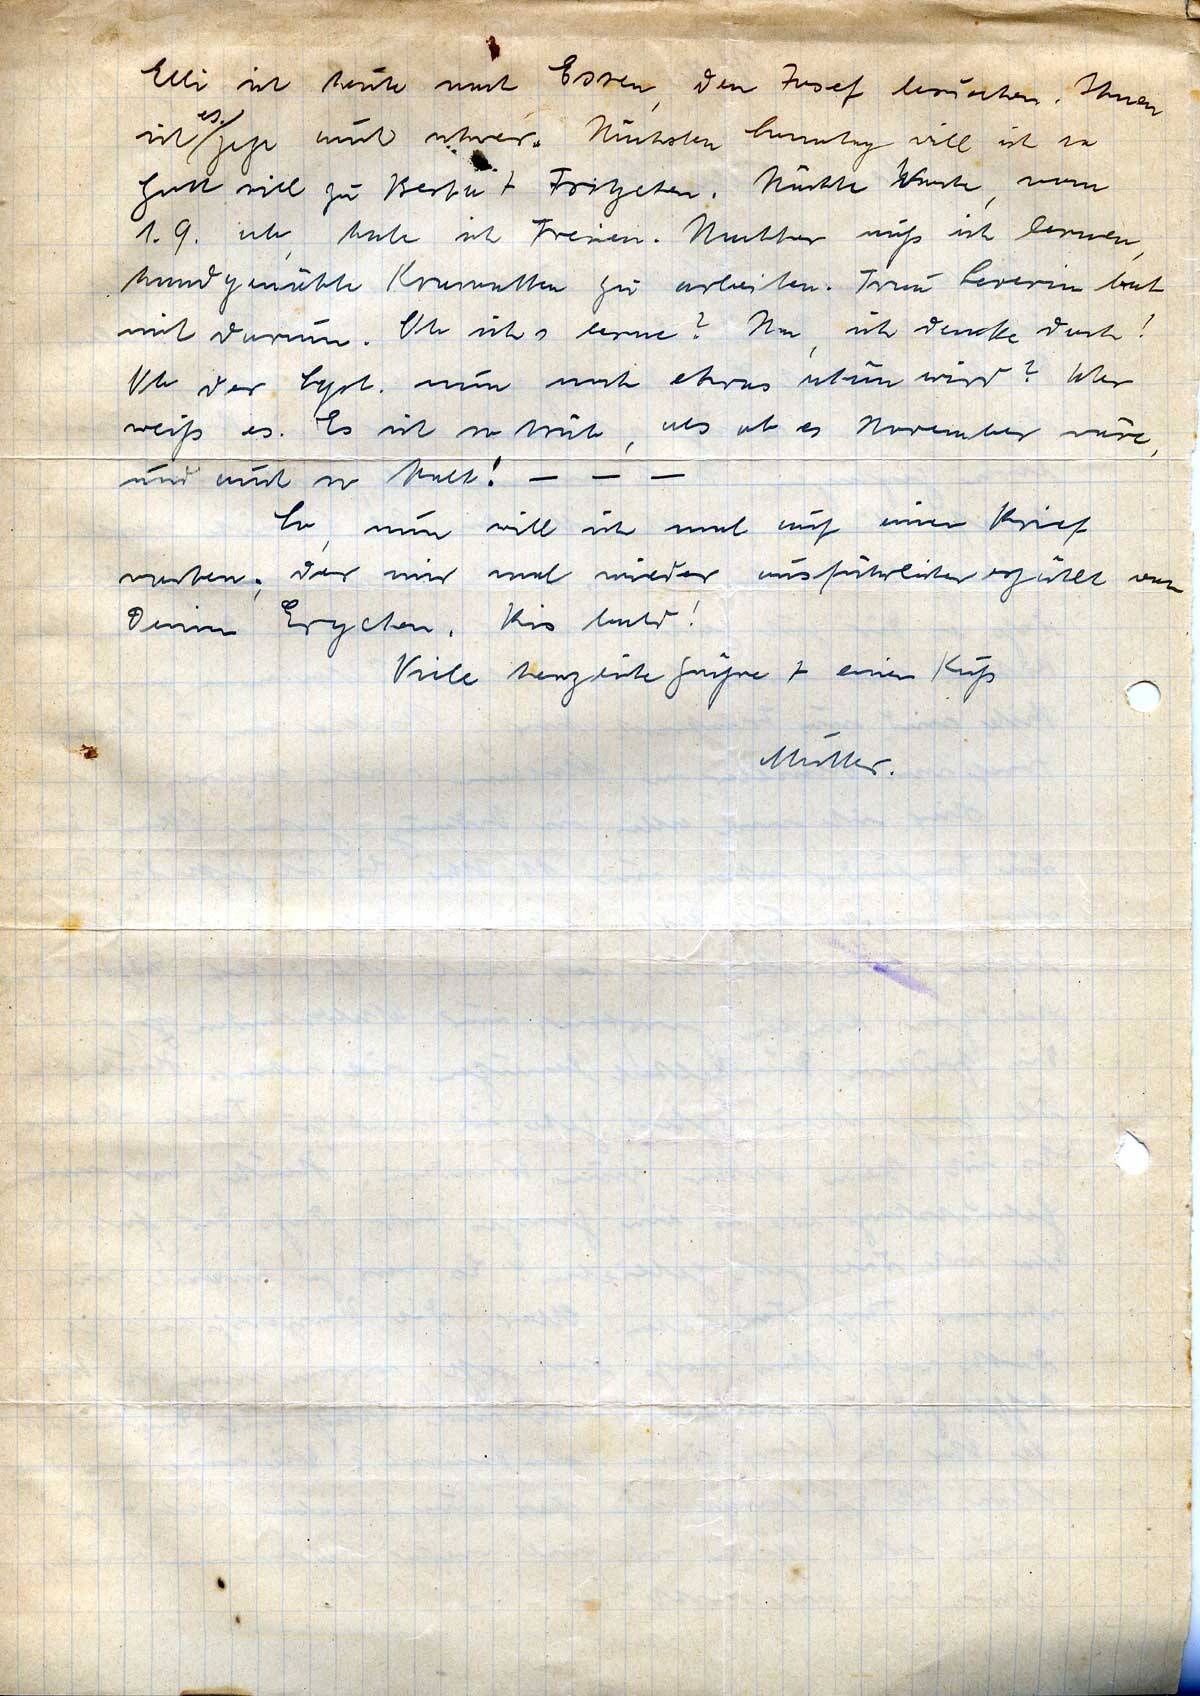 Elli ist heute nach Essen, den Josef besuchen. Ihnen
ist es jetzt auch schwer. Nächsten Sonntag will ich so
Gott will zu Berta + Fritzchen. Nächste Woche, vom
1.9. ab, habe ich Ferien. Nachher muß ich lernen,
handgenähte Krawatten zu arbeiten. Frau Severin bat
mich darum. Ob ich's lerne? Na, ich denke doch!
Ob der Sept. nun noch etwas schön wird? Wer
weiß es. Es ist so trüb, als ob es November wäre,
und auch so kalt! — — —
So, nun will ich mal auf einen Brief
warten, der mir mal wieder ausführlicher erzählt von
Deinem Erychen. Bis bald!
Viele herzliche Grüße + einen Kuß
Mutter.